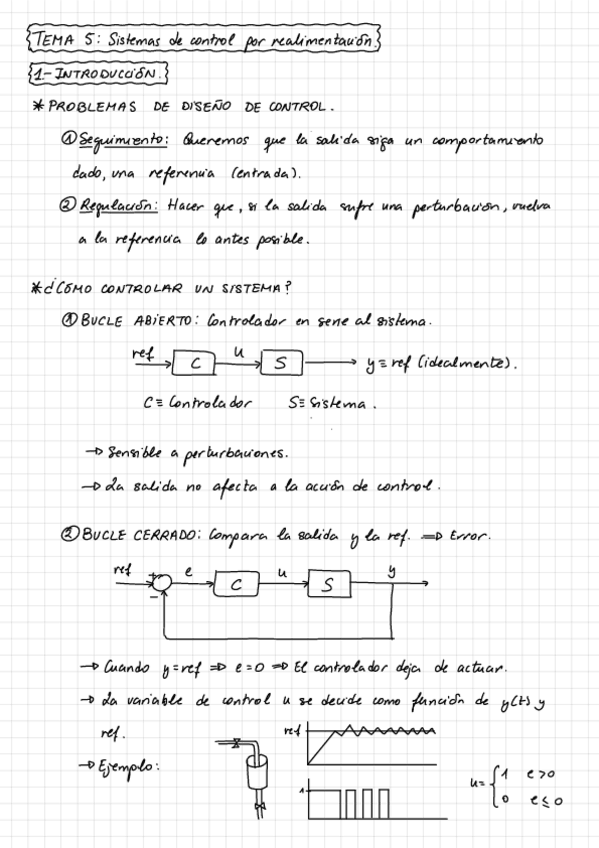 TEMA 5: Sistemas de control por realimentación.
1- INTRODUCCIÓN.
* PROBLEMAS DE DISEÑO DE CONTROL.
① Seguimiento: Queremos que la salida siga un comportamiento
dado, una referencia (entrada).
② Regulación: Hacer que, si la salida sufre una perturbación, vuelva
a la referencia lo antes posible.
* ¿CÓMO CONTROLAR UN SISTEMA?
① BUCLE ABIERTO: Controlador en serie al sistema.
ref C u S y ≡ ref (idealmente).
C ≡ Controlador S ≡ Sistema.
→ Sensible a perturbaciones.
→ La salida no afecta a la acción de control.
② BUCLE CERRADO: Compara la salida y la ref. ⇒ Error.
ref + − e C u S y
→ Cuando y = ref ⇒ e = 0 ⇒ El controlador deja de actuar.
→ La variable de control u se decide como función de y(t) y
ref.
→ Ejemplo:
ref
1
u = { 1 e > 0
0 e ≤ 0